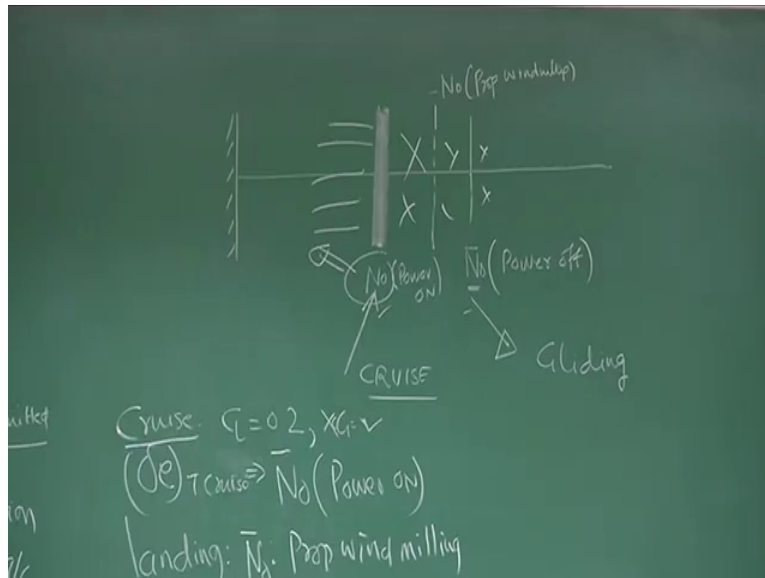 No (Prop windmilling)
X Y x
X x
No (Power ON)
No (Power off)
CRUISE
Gliding
Cruise. CL = 0.2, XCG = ✓
(δe) T Cruise ⇒ No (Power ON)
landing: No: Prop wind milling